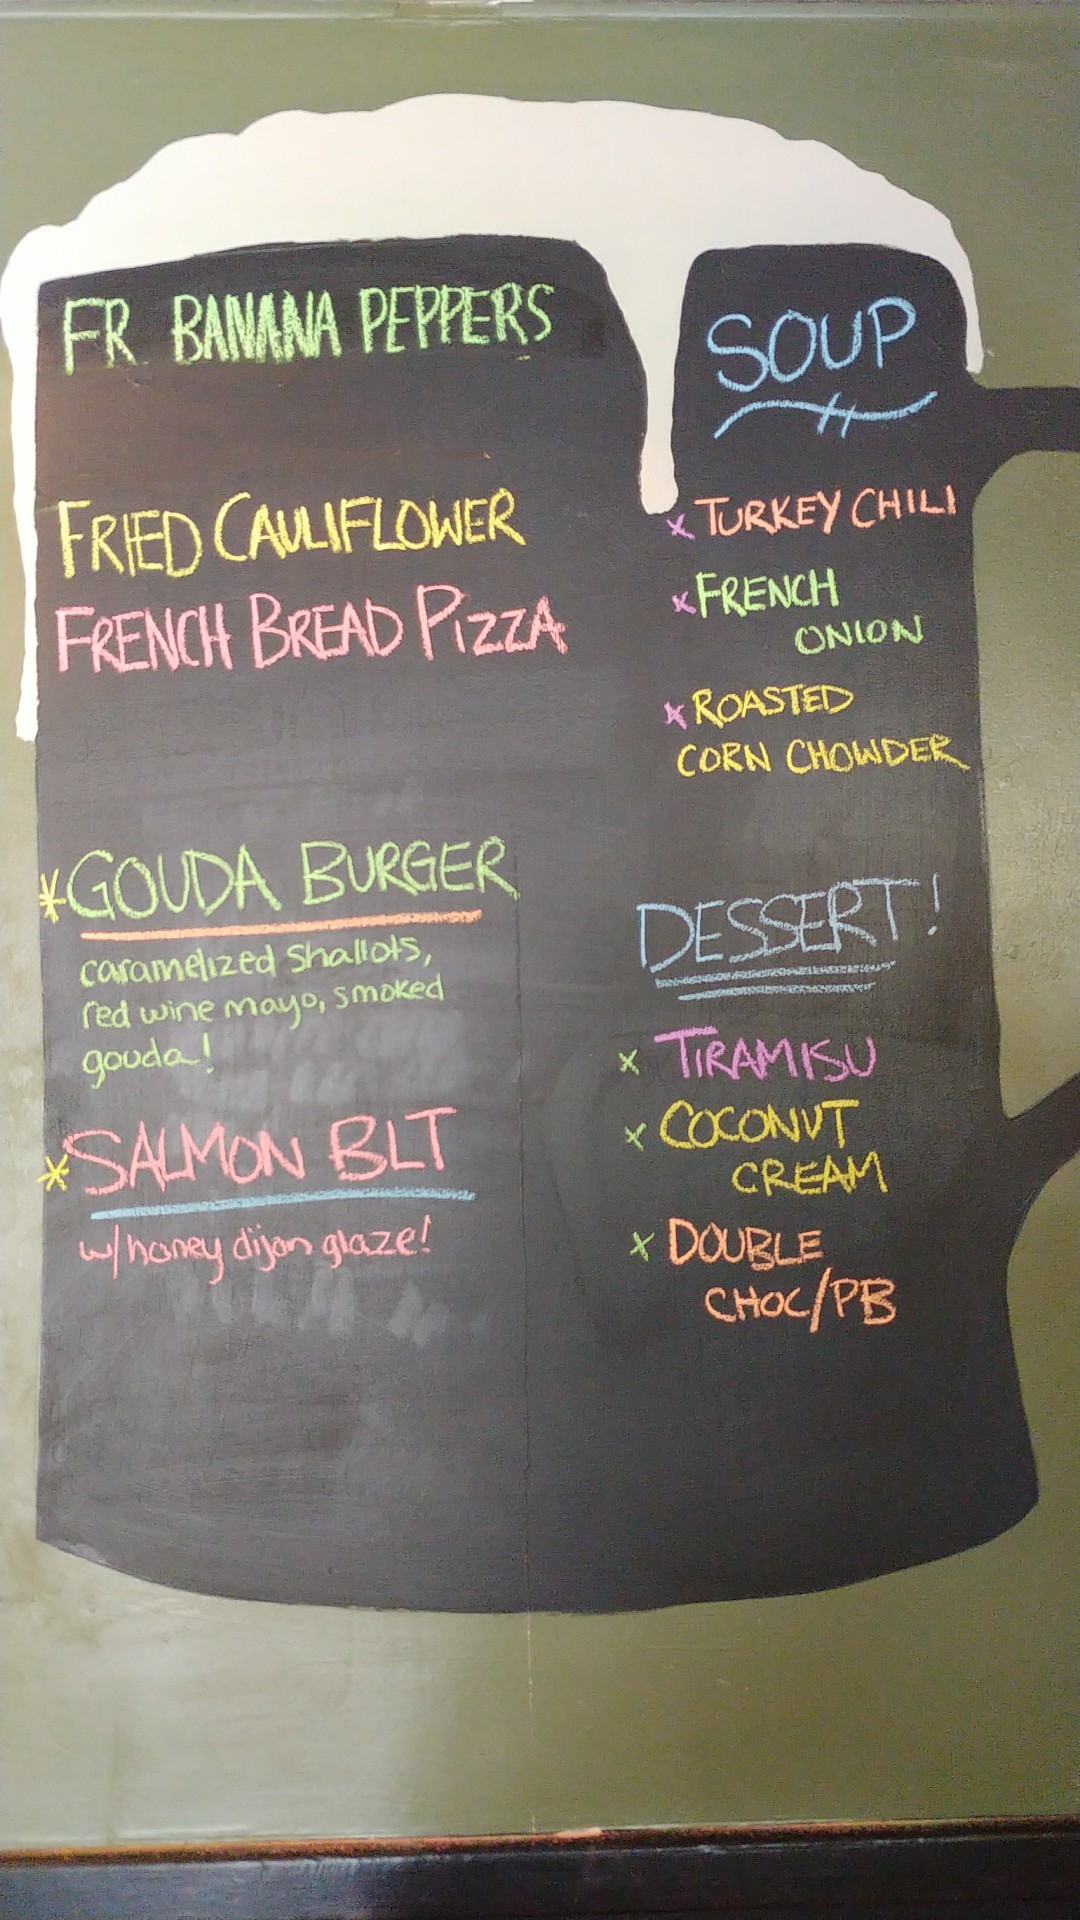 FR BANANA PEPPERS
FRIED CAULIFLOWER
FRENCH BREAD PIZZA
*GOUDA BURGER
caramelized shallots,
red wine mayo, smoked
gouda!
*SALMON BLT
w/honey dijon glaze!
SOUP
x TURKEY CHILI
x FRENCH
ONION
x ROASTED
CORN CHOWDER
DESSERT!
x TIRAMISU
x COCONUT
CREAM
x DOUBLE
CHOC/PB